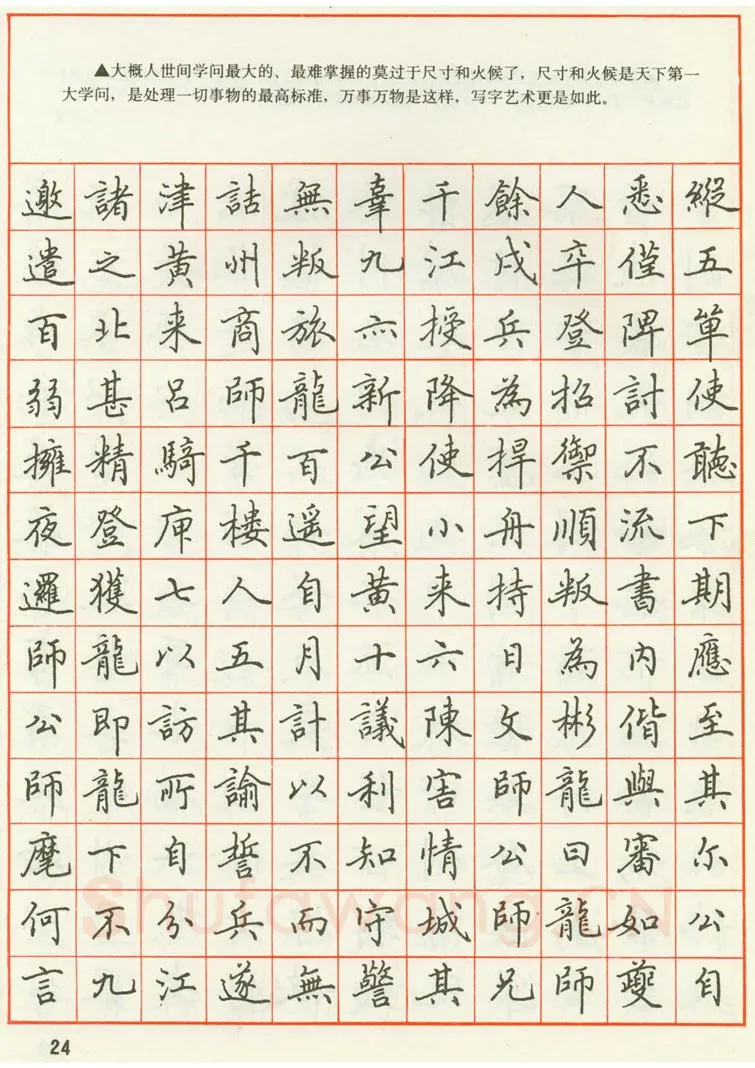 ▲大概人世间学问最大的、最难掌握的莫过于尺寸和火候了，尺寸和火候是天下第一
大学问，是处理一切事物的最高标准，万事万物是这样，写字艺术更是如此。
邀諸津詰無辜千餘人悉縱
遣之黄州叛九江戍卒僅五
百北来商旅亦授兵登陴單
弱甚呂師龍新降為招討使
擁精騎千百公使捍禦不聽
夜登庾樓遥望小舟順流下
邏獲七人自黄来持叛書期
師龍以五月十六日為内應
公即訪其計議陳文彬偕至
師龍所諭以利害師龍與其
麾下自誓不知情公曰審尔
何不分兵而守城師龍如公
言九江遂無警其兄師夔自
24
Shufawang.CN